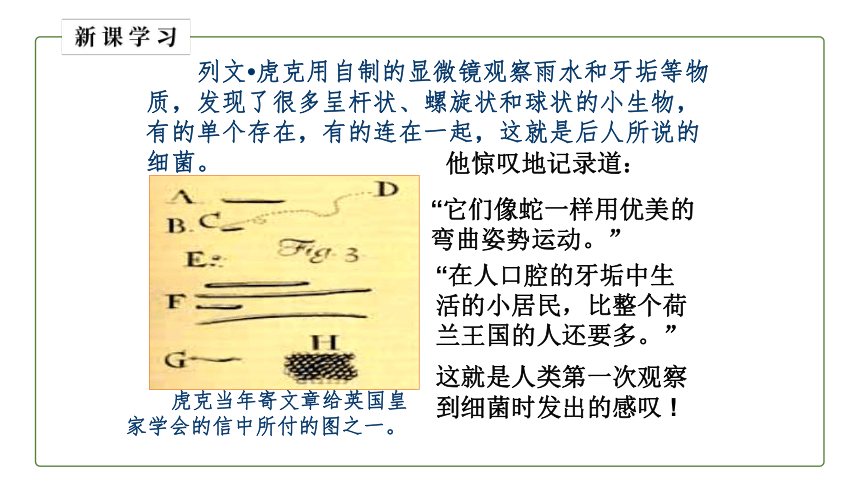 新课学习
列文•虎克用自制的显微镜观察雨水和牙垢等物
质，发现了很多呈杆状、螺旋状和球状的小生物，
有的单个存在，有的连在一起，这就是后人所说的
细菌。
他惊叹地记录道：
“它们像蛇一样用优美的
弯曲姿势运动。”
“在人口腔的牙垢中生
活的小居民，比整个荷
兰王国的人还要多。”
这就是人类第一次观察
到细菌时发出的感叹！
A
D
B.
C
E.
Fig. 3
F
H
G
虎克当年寄文章给英国皇
家学会的信中所付的图之一。